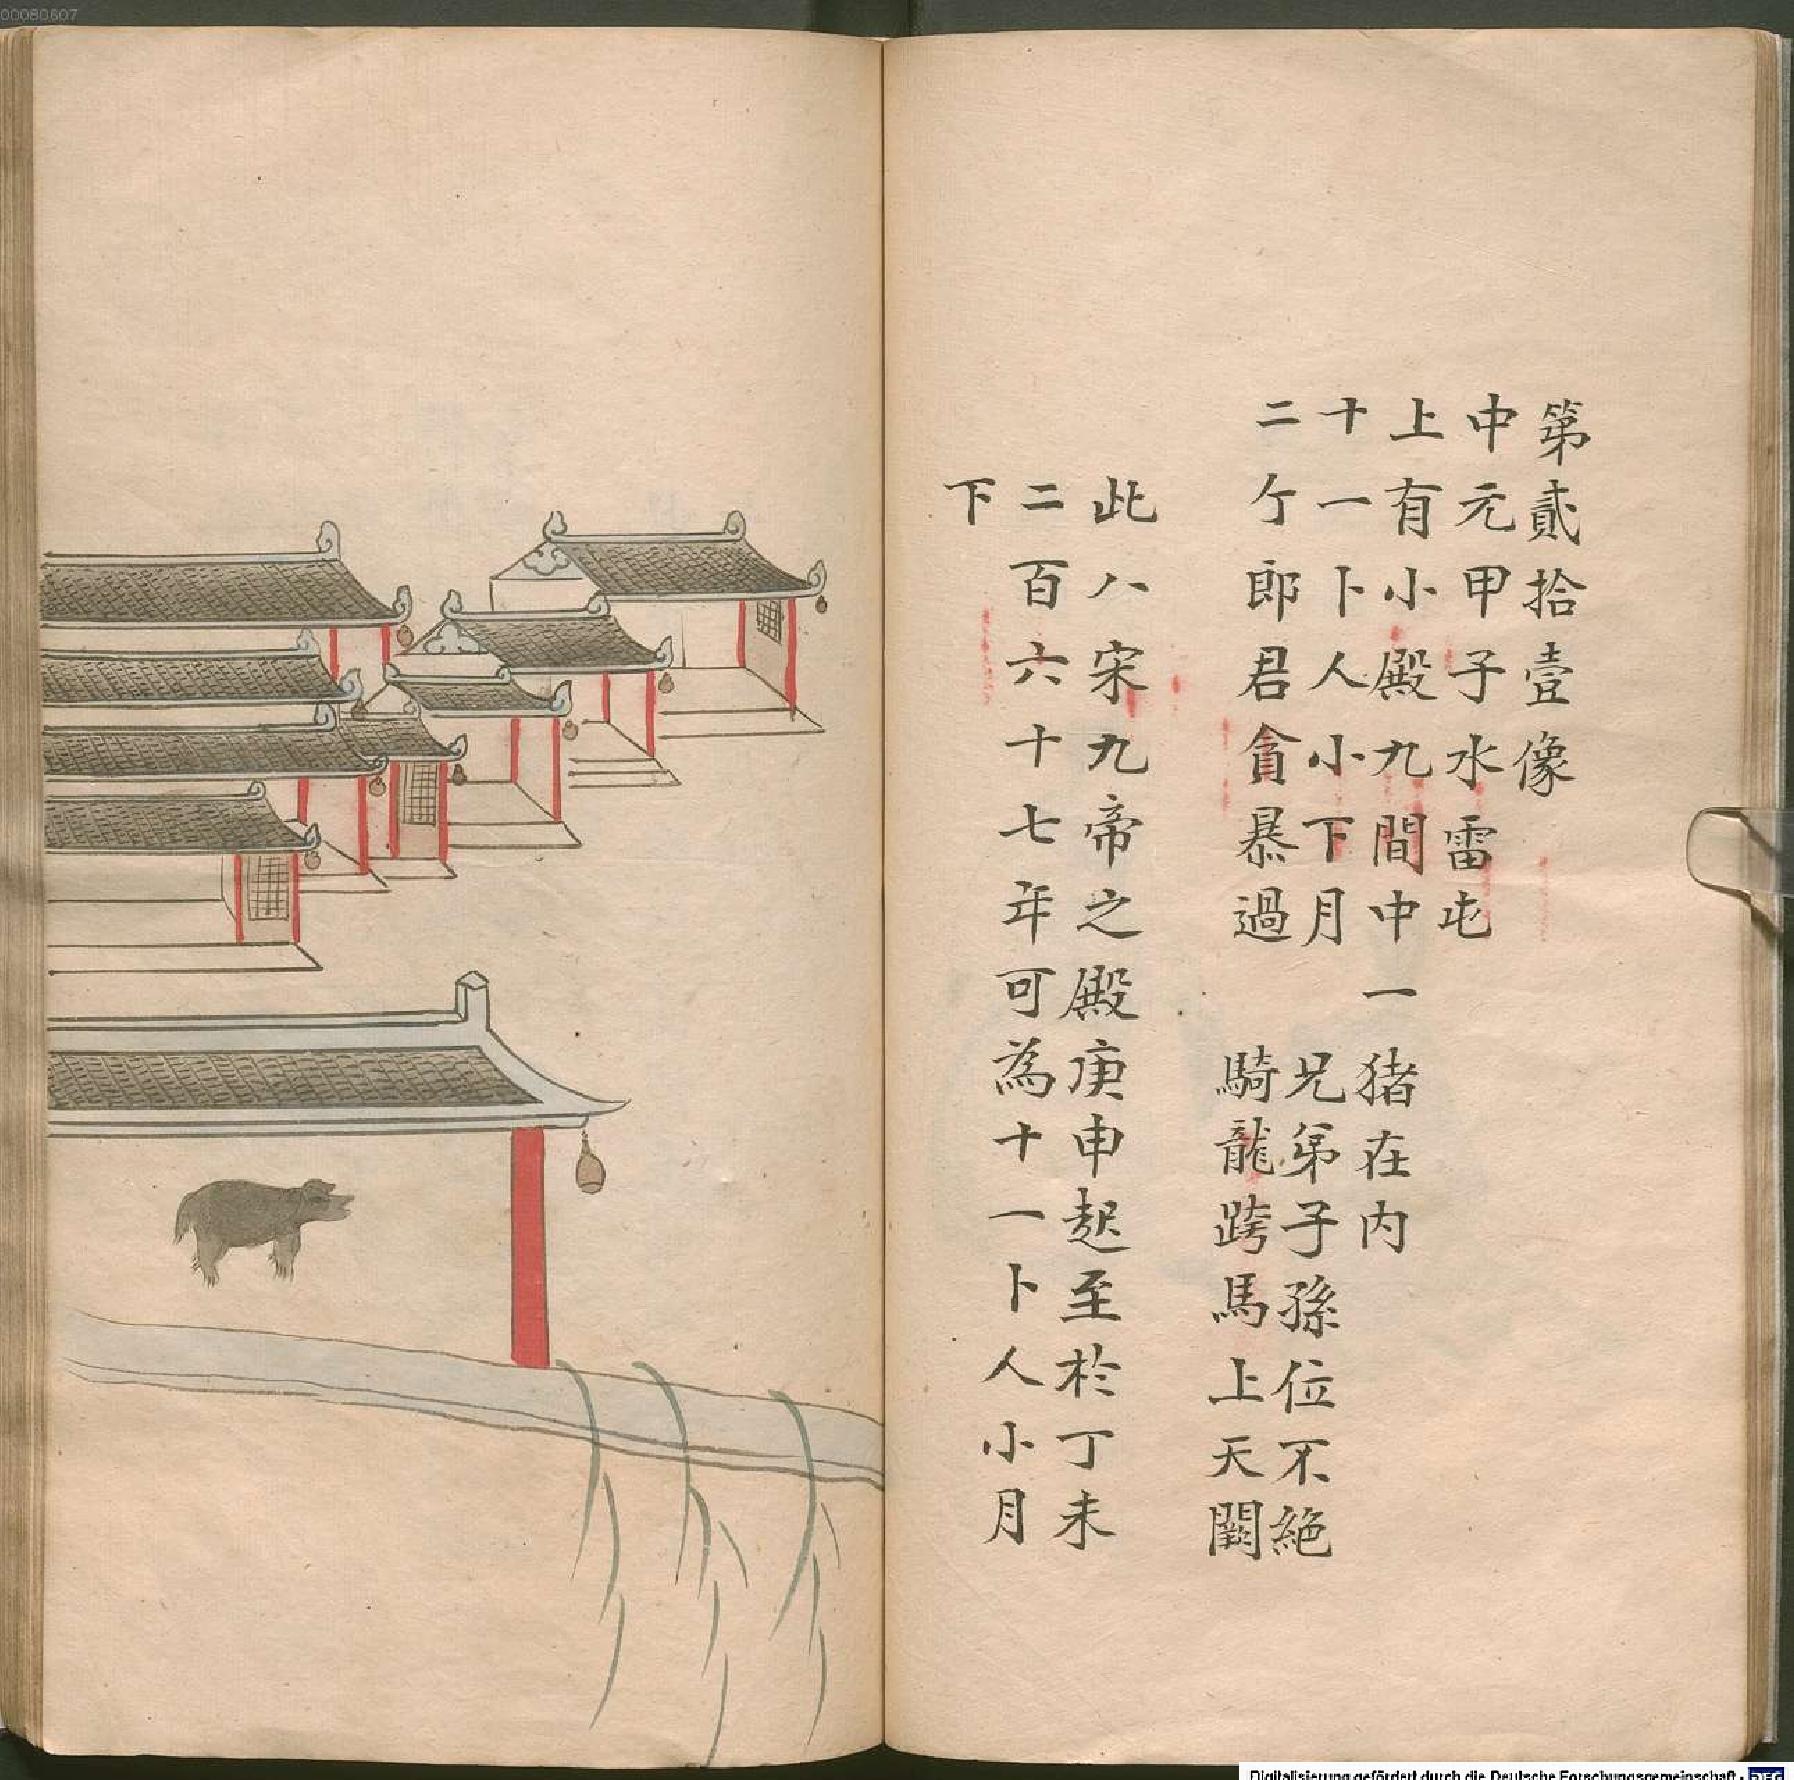 00080607
第貳拾壹像
中元甲子水雷屯
上有小殿九間中一猪在内
十一卜人小下月 兄弟子孫位不絕
二亇郎君貪暴過 騎龍跨馬上天闕
此八宋九帝之殿庚申起至於丁未
二百六十七年可為十一卜人小月
下
Digitalisierung gefördert durch die Deutsche Forschungsgemeinschaft - DFG